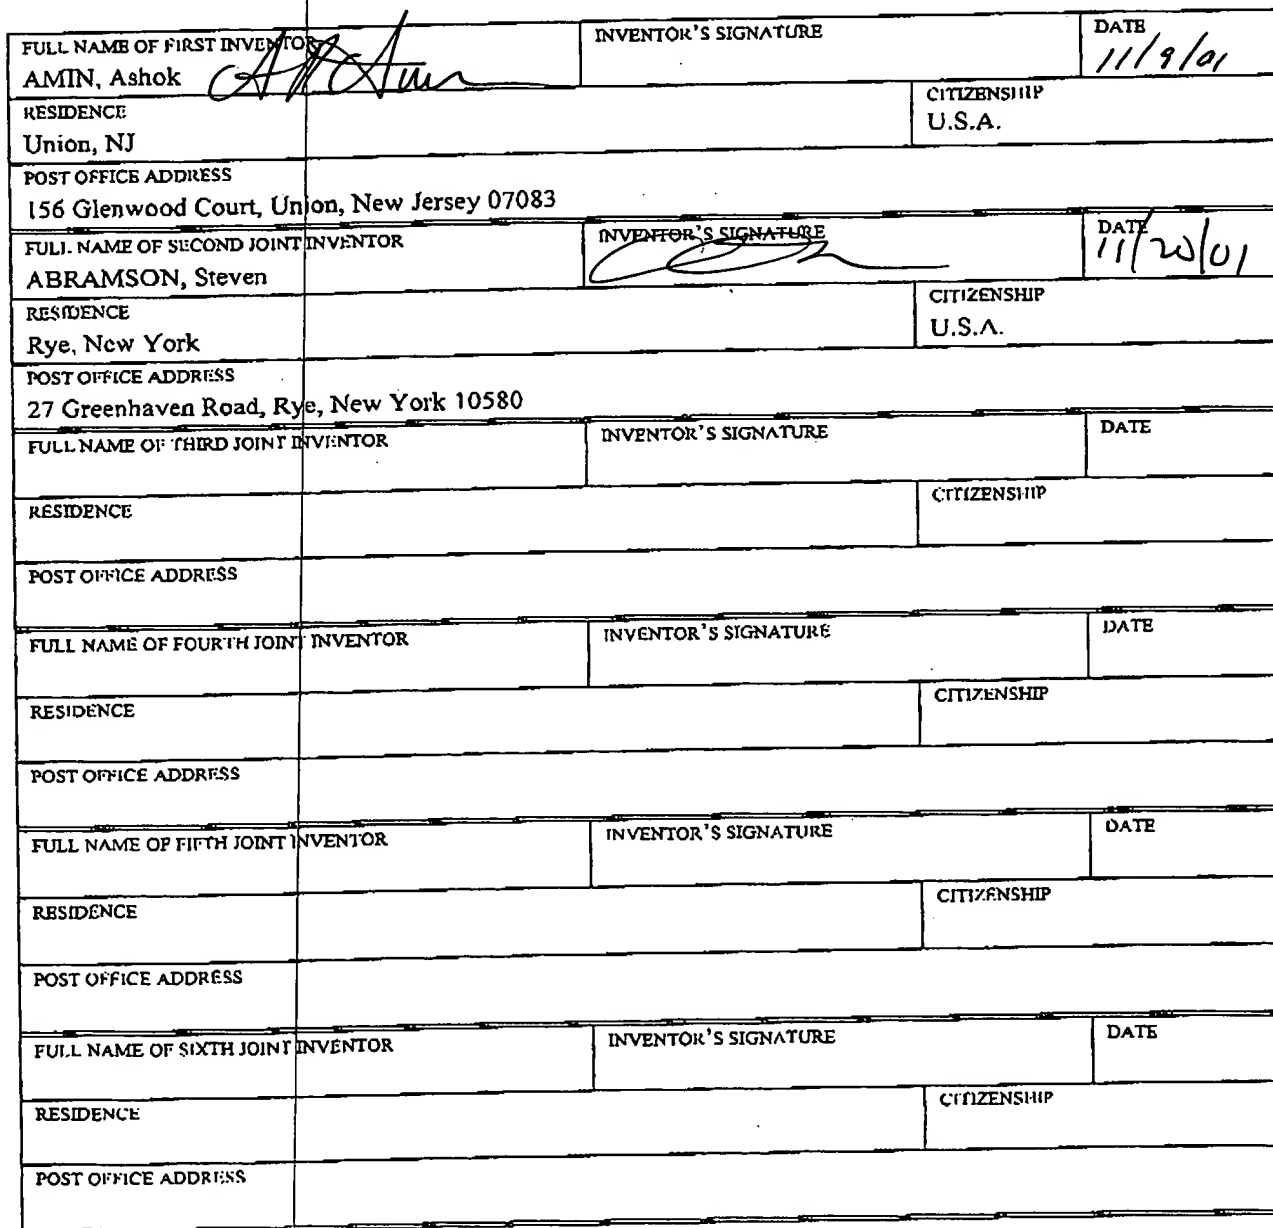 FULL NAME OF FIRST INVENTOR INVENTOR'S SIGNATURE DATE
AMIN, Ashok 11/9/01
RESIDENCE CITIZENSHIP
Union, NJ U.S.A.
POST OFFICE ADDRESS
156 Glenwood Court, Union, New Jersey 07083
FULL NAME OF SECOND JOINT INVENTOR INVENTOR'S SIGNATURE DATE
ABRAMSON, Steven 11/20/01
RESIDENCE CITIZENSHIP
Rye, New York U.S.A.
POST OFFICE ADDRESS
27 Greenhaven Road, Rye, New York 10580
FULL NAME OF THIRD JOINT INVENTOR INVENTOR'S SIGNATURE DATE
RESIDENCE CITIZENSHIP
POST OFFICE ADDRESS
FULL NAME OF FOURTH JOINT INVENTOR INVENTOR'S SIGNATURE DATE
RESIDENCE CITIZENSHIP
POST OFFICE ADDRESS
FULL NAME OF FIFTH JOINT INVENTOR INVENTOR'S SIGNATURE DATE
RESIDENCE CITIZENSHIP
POST OFFICE ADDRESS
FULL NAME OF SIXTH JOINT INVENTOR INVENTOR'S SIGNATURE DATE
RESIDENCE CITIZENSHIP
POST OFFICE ADDRESS